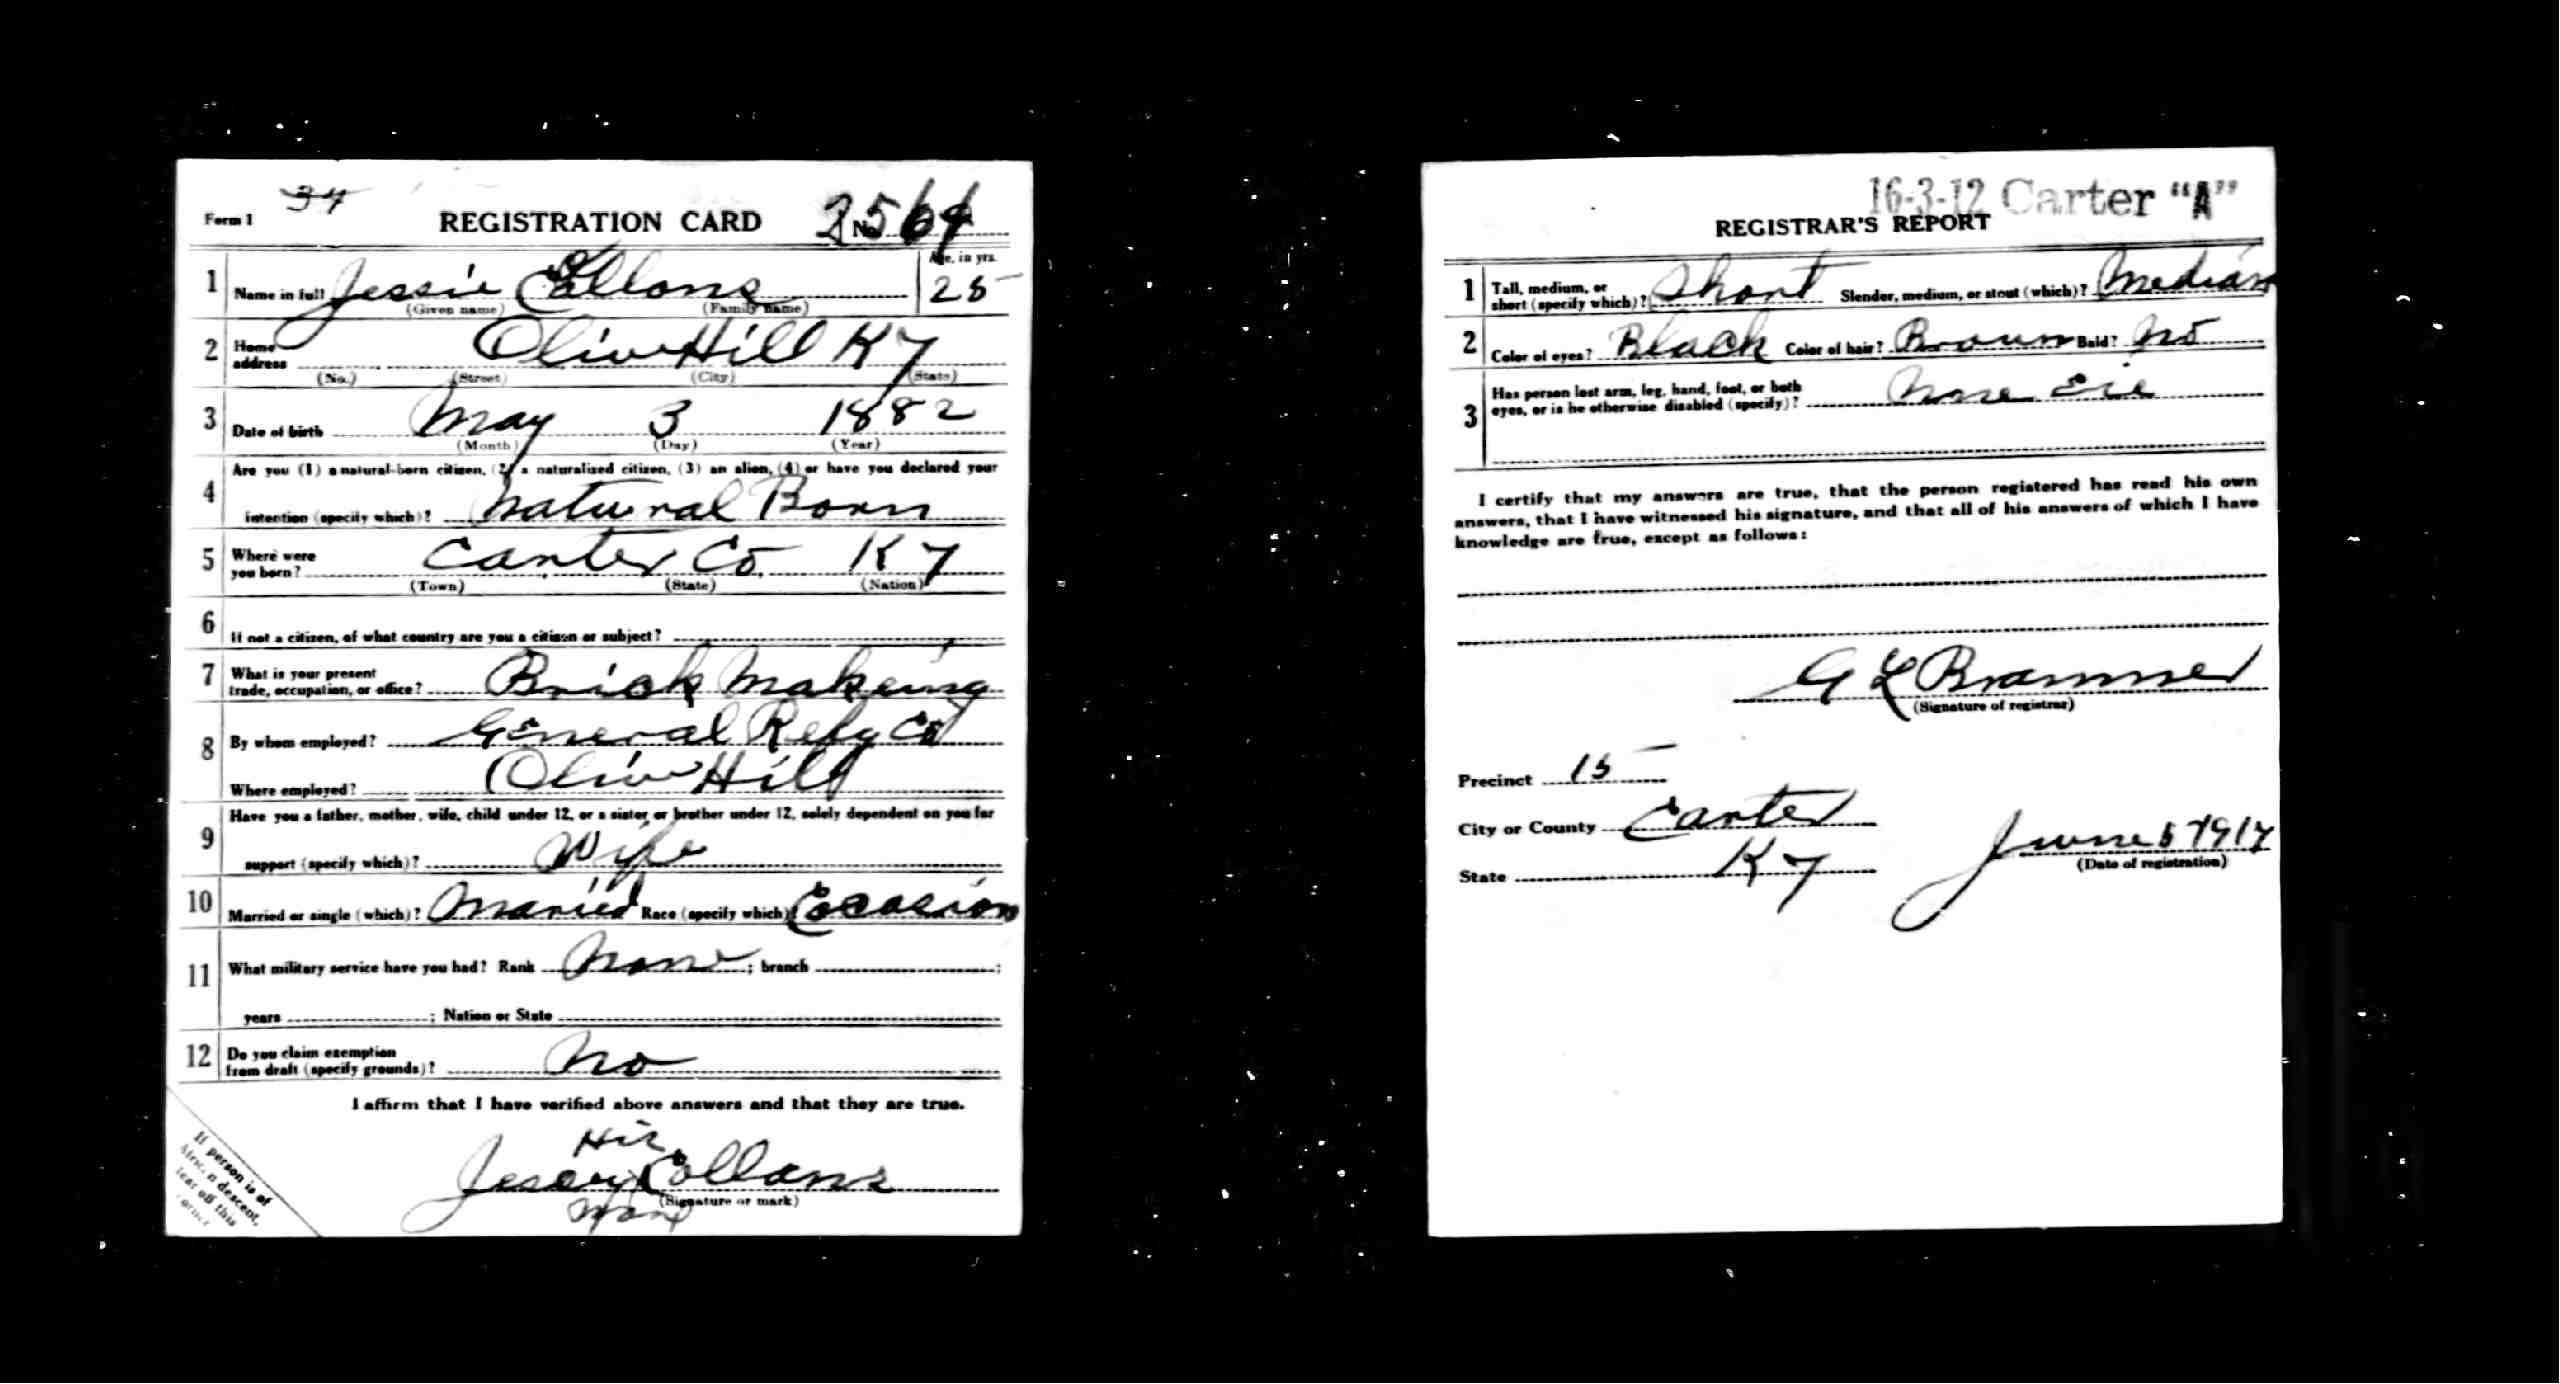 Form 1 34 REGISTRATION CARD No. 2564
1 Name in full Jessie Collons Age, in yrs. 25
(Given name) (Family name)
2 Home address Olive Hill Ky
(No.) (Street) (City) (State)
3 Date of birth May 3 1882
(Month) (Day) (Year)
4 Are you (1) a natural-born citizen, (2) a naturalized citizen, (3) an alien, (4) or have you declared your
intention (specify which)? Natural Born
5 Where were you born? Carter Co Ky
(Town) (State) (Nation)
6 If not a citizen, of what country are you a citizen or subject?
7 What is your present
trade, occupation, or office? Brick Makeing
8 By whom employed? General Refy Co
Where employed? Olive Hill
9 Have you a father, mother, wife, child under 12, or a sister or brother under 12, solely dependent on you for
support (specify which)? Wife
10 Married or single (which)? Maried Race (specify which)? Cocasion
11 What military service have you had? Rank None ; branch ;
years ; Nation or State
12 Do you claim exemption
from draft (specify grounds)? No
I affirm that I have verified above answers and that they are true.
His
Jessey x Collans
(Signature or mark)
Mark
If person is of
African descent,
tear off this
corner
16-3-12 Carter "A"
REGISTRAR'S REPORT
1 Tall, medium, or
short (specify which)? Short Slender, medium, or stout (which)? Median
2 Color of eyes? Black Color of hair? Broun Bald? No
3 Has person lost arm, leg, hand, foot, or both
eyes, or is he otherwise disabled (specify)?
I certify that my answers are true, that the person registered has read his own
answers, that I have witnessed his signature, and that all of his answers of which I have
knowledge are true, except as follows:
G L Brammer
(Signature of registrar)
Precinct 15
City or County Carter
State Ky
June 5 1917
(Date of registration)